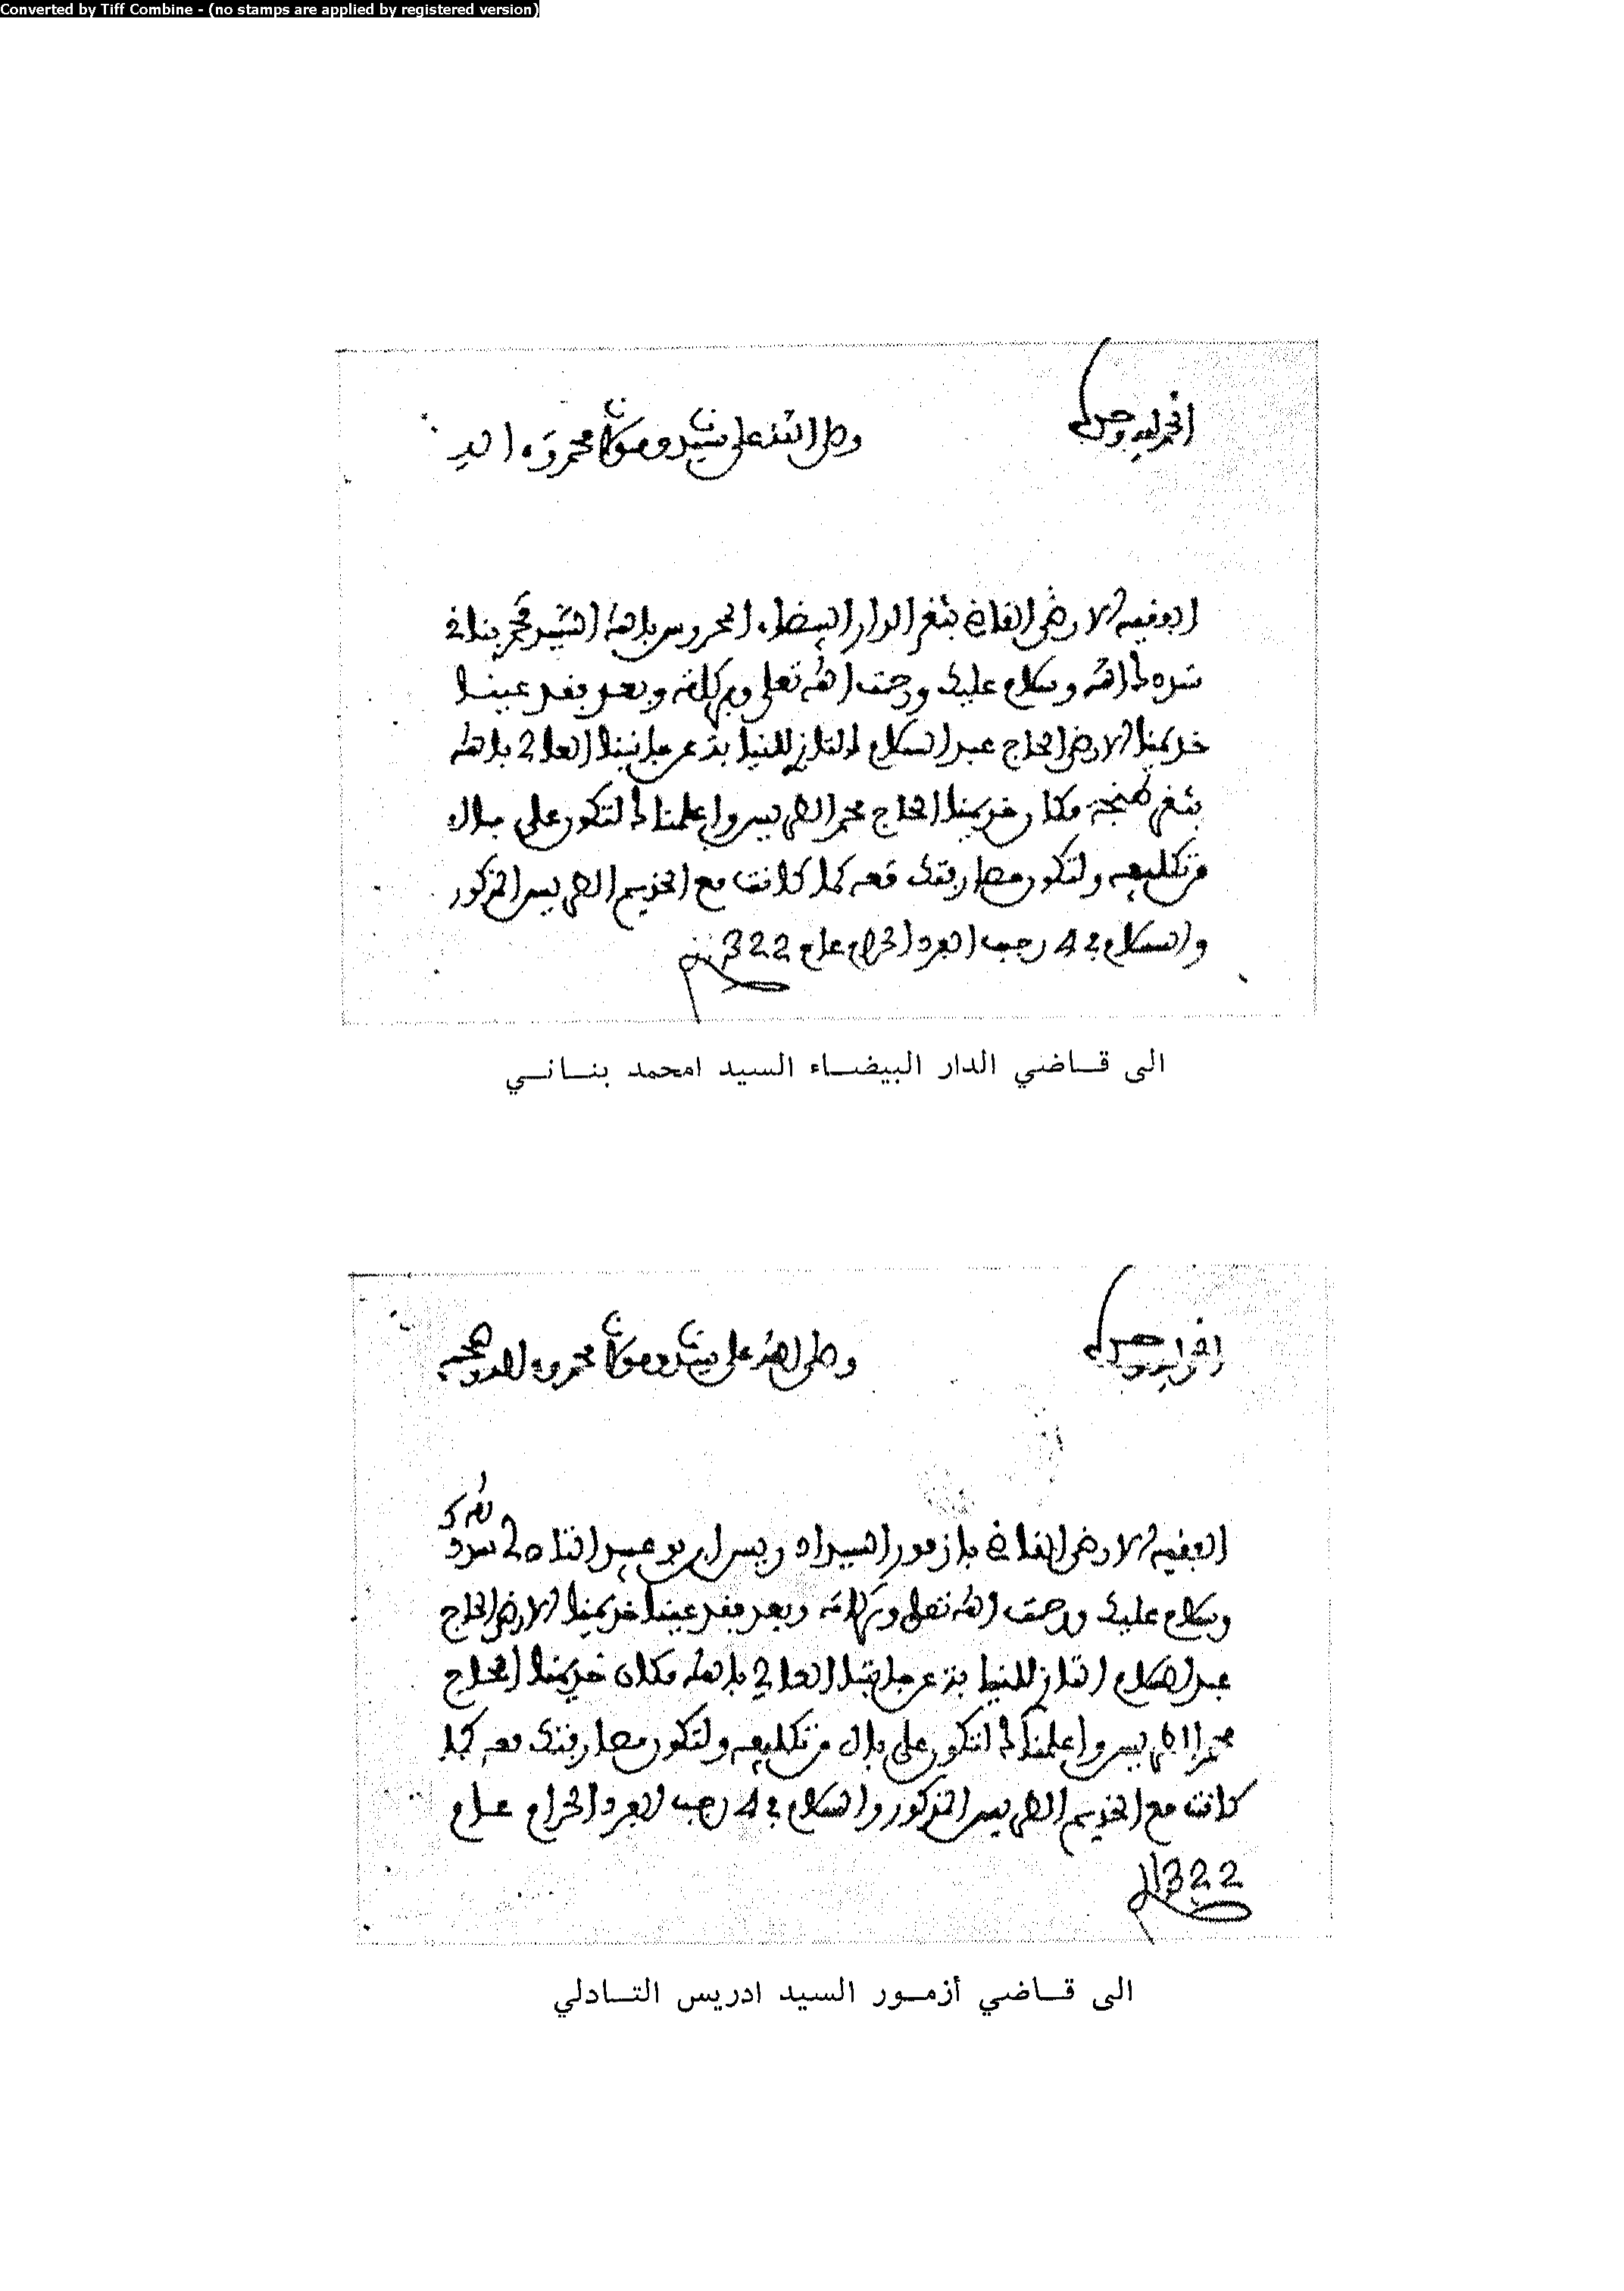 Converted by Tiff Combine - (no stamps are applied by registered version)
الحمد لله وحده
وصلى الله على سيدنا ومولانا محمد وءاله
الفقيه الارضى القاضي بثغر الدار البيضاء المحروس بالله السيد محمد بناني
سددك الله وسلام عليك ورحمت الله تعلى وبركاته وبعد فقد عينا
خديمنا الارضى الحاج عبد السلام التازي للنيابة عن جانبنا العالي بالله
بثغر طنجة مكان خديمنا الحاج محمد الطريس واعلمناك لتكون على بال
من تكليفه ولتكون مصارفتك معه كما كانت مع الخديم الطريس المذكور
والسلام في 4 رجب الفرد الحرام عام 1322
الى قاضي الدار البيضاء السيد امحمد بناني
الحمد لله وحده
وصلى الله على سيدنا ومولانا محمد وءاله وصحبه
الفقيه الارضى القاضي بازمور السيد ادريس بن عبد التادلي سددك الله
وسلام عليك ورحمت الله تعلى وبركاته وبعد فقد عينا خديمنا الارضى الحاج
عبد السلام التازي للنيابة عن جانبنا العالي بالله مكان خديمنا الحاج
محمد الطريس واعلمناك لتكون على بال من تكليفه ولتكون مصارفتك معه كما
كانت مع الخديم الطريس المذكور والسلام في 4 رجب الفرد الحرام عام
1322
الى قاضي أزمور السيد ادريس التادلي